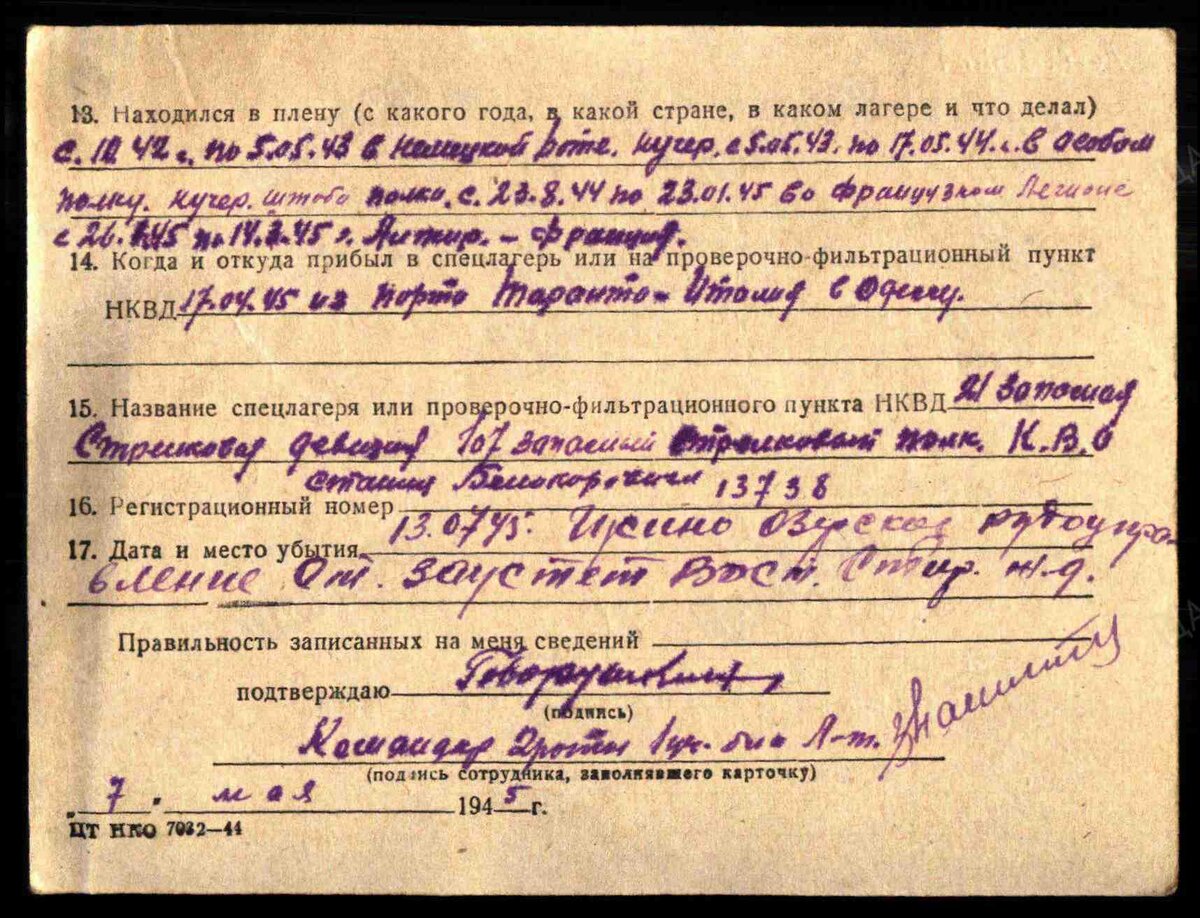 13. Находился в плену (с какого года, в какой стране, в каком лагере и что делал)
с. 10 42 г. по 5.05.43 в немецкой роте. кучер. с 5.05.43. по 17.05.44 г. в особом
полку. кучер. штаба полка. с. 23.8.44 по 23.01.45 во французком Легионе
с 26. 45 по 14. 45 г. – Франция.
14. Когда и откуда прибыл в спецлагерь или на проверочно-фильтрационный пункт
НКВД 17.04.45 из порто Таранто – Италия в Одессу.
15. Название спецлагеря или проверочно-фильтрационного пункта НКВД 21 Запасная
Стрелковая дивизия 107 запасный стрелковый полк. К.В.О
станция Белокоровичи
16. Регистрационный номер 13738
17. Дата и место убытия 13.07.45. озерское рудоупра-
вление Ст. Заустет Вост. Сибир. ж.д.
Правильность записанных на меня сведений
подтверждаю
(подпись)
Командир роты 1 уч. б-на Л-т.
(подпись сотрудника, заполнявшего карточку)
„ 7 " мая 1945 г.
ЦТ НКО 7032—44